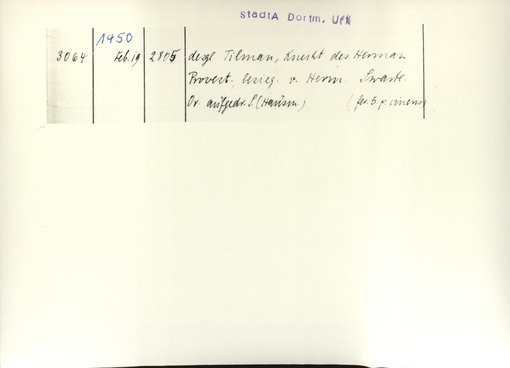 StadtA Dortm. Ufk
1450
3064 Feb. 19 2805 desgl. Tilman, Knecht des Herman
Provest, besieg. v. Herm. Swarte
Or. aufgedr. S. (Hausm.) (fer. 5 p. cineris)